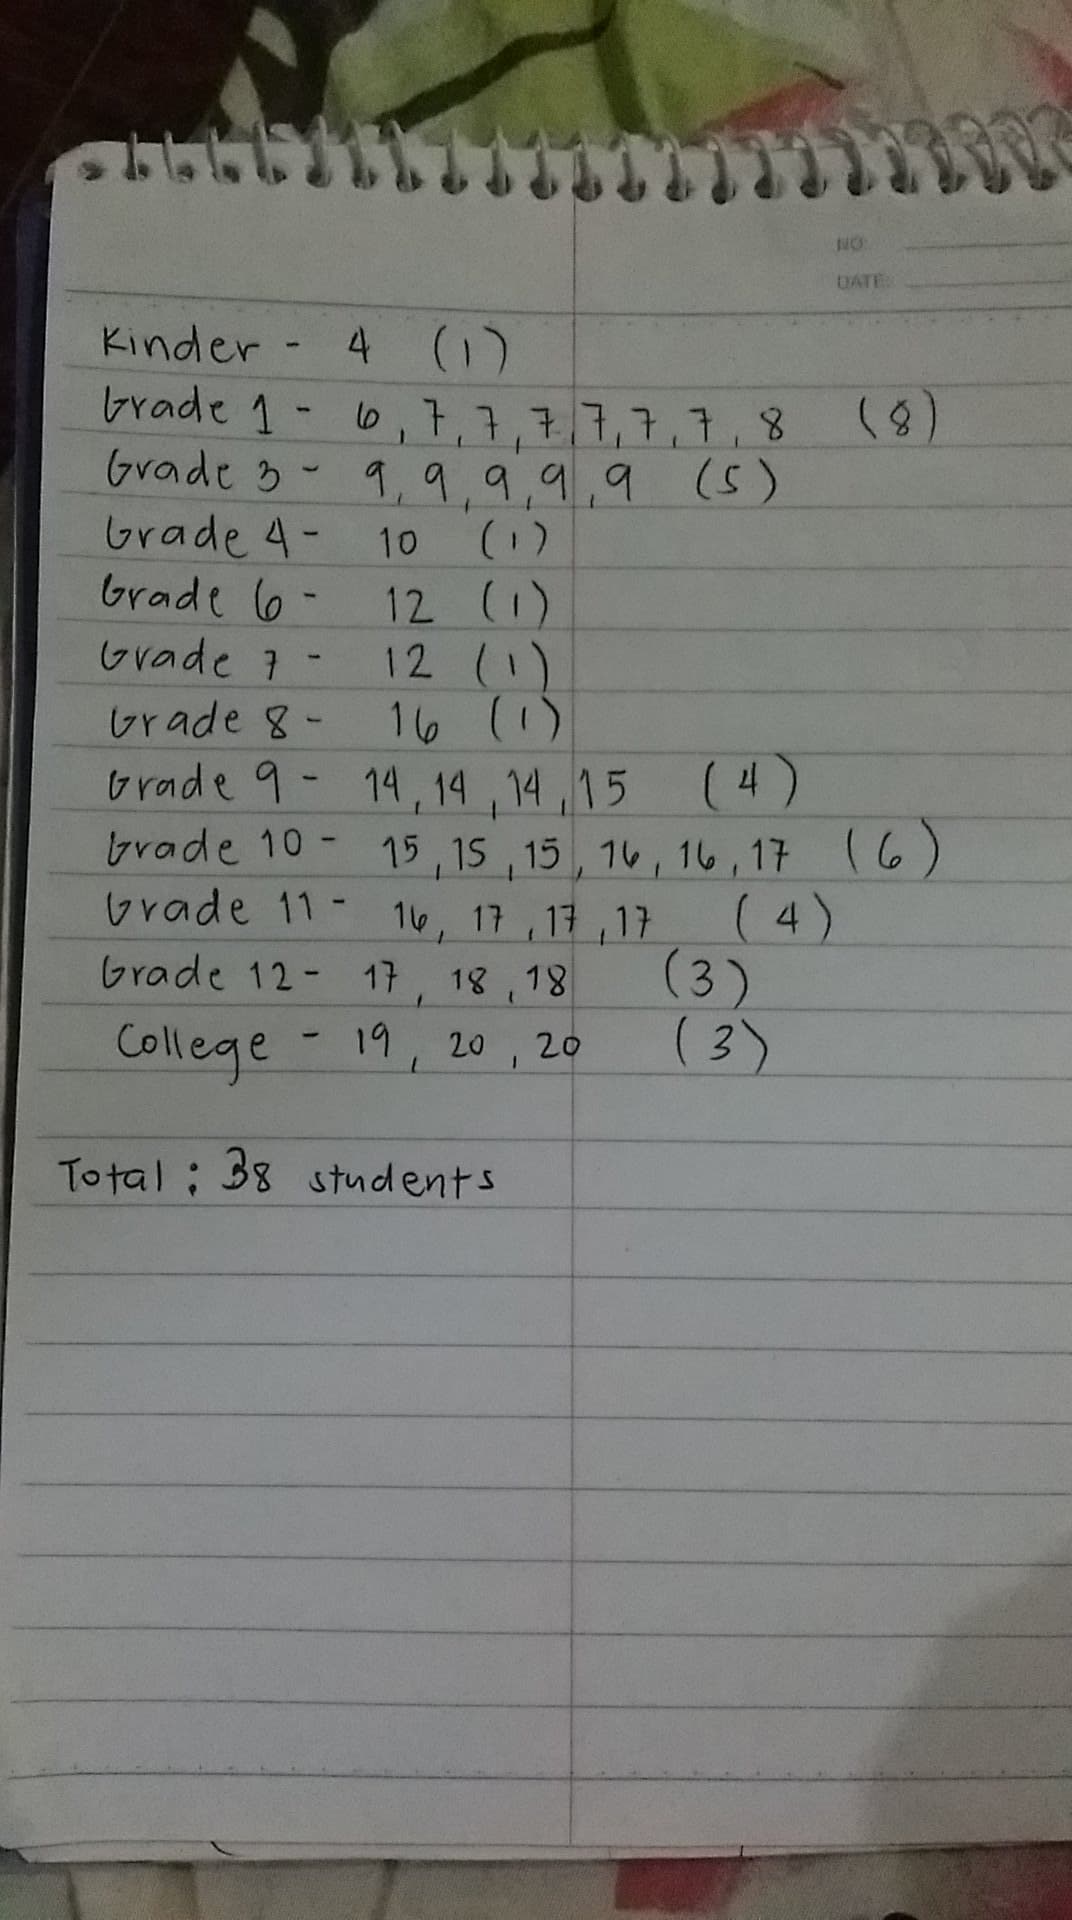 NO:
DATE:
Kinder - 4 (1)
Grade 1 - 6, 7, 7, 7, 7, 7, 7, 8 (8)
Grade 3 - 9, 9, 9, 9, 9 (5)
Grade 4 - 10 (1)
Grade 6 - 12 (1)
Grade 7 - 12 (1)
Grade 8 - 16 (1)
Grade 9 - 14, 14, 14, 15 (4)
Grade 10 - 15, 15, 15, 16, 16, 17 (6)
Grade 11 - 16, 17, 17, 17 (4)
Grade 12 - 17, 18, 18 (3)
College - 19, 20, 20 (3)
Total : 38 students